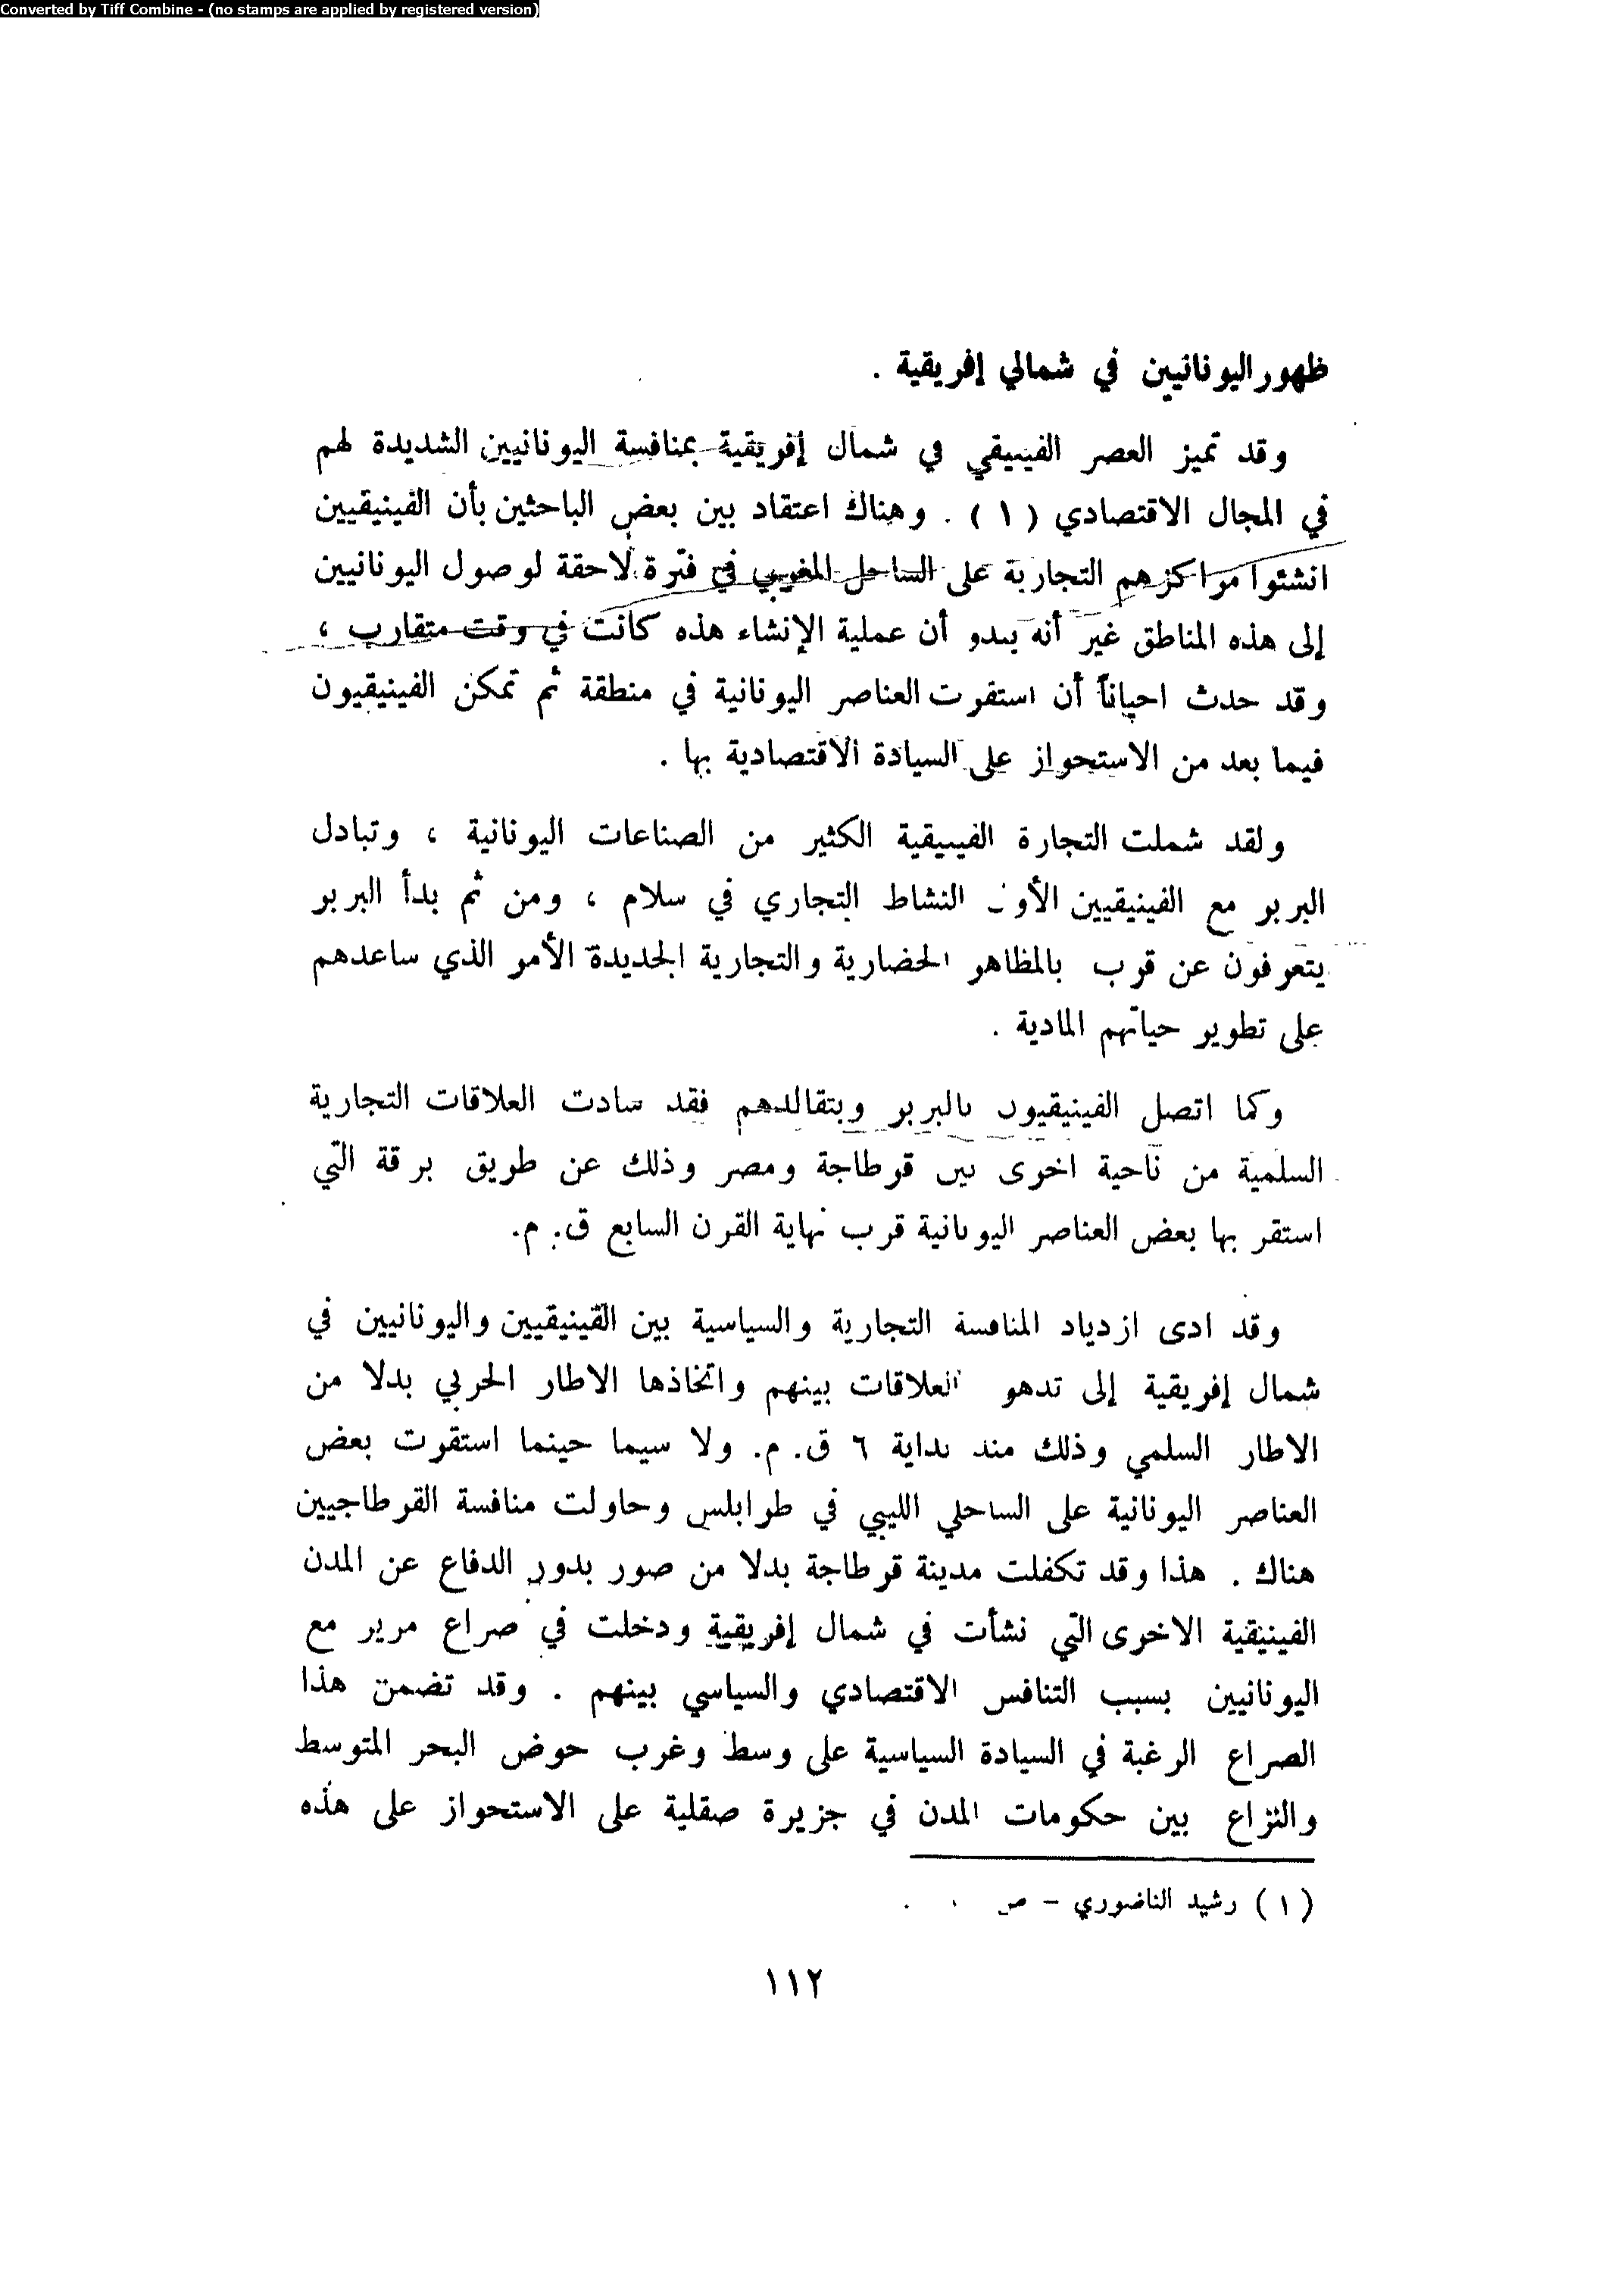 Converted by Tiff Combine - (no stamps are applied by registered version)
ظهور اليونانيين في شمالي إفريقية .
وقد تميز العصر الفينيقي في شمال إفريقية بمنافسة اليونانيين الشديدة لهم
في المجال الاقتصادي ( ١ ) . وهناك اعتقاد بين بعض الباحثين بأن الفينيقيين
انشئوا مراكزهم التجارية على الساحل المغربي في فترة لاحقة لوصول اليونانيين
إلى هذه المناطق غير أنه يبدو أن عملية الإنشاء هذه كانت في وقت متقارب ،
وقد حدث احياناً أن استقرت العناصر اليونانية في منطقة ثم تمكن الفينيقيون
فيما بعد من الاستحواز على السيادة الاقتصادية بها .
ولقد شملت التجارة الفينيقية الكثير من الصناعات اليونانية ، وتبادل
البربر مع الفينيقيين الأول النشاط التجاري في سلام ، ومن ثم بدأ البربر
يتعرفون عن قرب بالمظاهر الحضارية والتجارية الجديدة الأمر الذي ساعدهم
على تطوير حياتهم المادية .
وكما اتصل الفينيقيون بالبربر وبتقالدهم فقد سادت العلاقات التجارية
السلمية من ناحية اخرى بين قرطاجة ومصر وذلك عن طريق برقة التي
استقر بها بعض العناصر اليونانية قرب نهاية القرن السابع ق. م.
وقد ادى ازدياد المنافسة التجارية والسياسية بين القينيقيين واليونانيين في
شمال إفريقية إلى تدهو العلاقات بينهم واتخاذها الاطار الحربي بدلا من
الاطار السلمي وذلك منذ بداية ٦ ق. م. ولا سيما حينما استقرت بعض
العناصر اليونانية على الساحلي الليبي في طرابلس وحاولت منافسة القرطاجيين
هناك . هذا وقد تكفلت مدينة قرطاجة بدلا من صور بدور الدفاع عن المدن
الفينيقية الاخرى التي نشأت في شمال إفريقية ودخلت في صراع مرير مع
اليونانيين بسبب التنافس الاقتصادي والسياسي بينهم . وقد تضمن هذا
الصراع الرغبة في السيادة السياسية على وسط وغرب حوض البحر المتوسط
والنزاع بين حكومات المدن في جزيرة صقلية على الاستحواز على هذه
( ١ ) رشيد الناضوري – ص .
١١٢